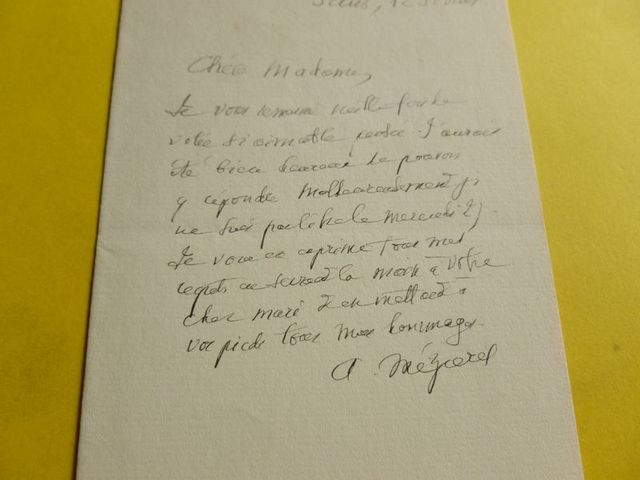 Chère Madame,
Je vous remercie mille fois de
votre si aimable pensée. J'aurais
été bien heureux de pouvoir
y répondre Malheureusement je
ne suis pas libre le mercredi 2
Je vous en exprime tous mes
regrets en serrant la main à votre
cher mari et en mettant à
vos pieds tous mes hommages.
A. Mézières